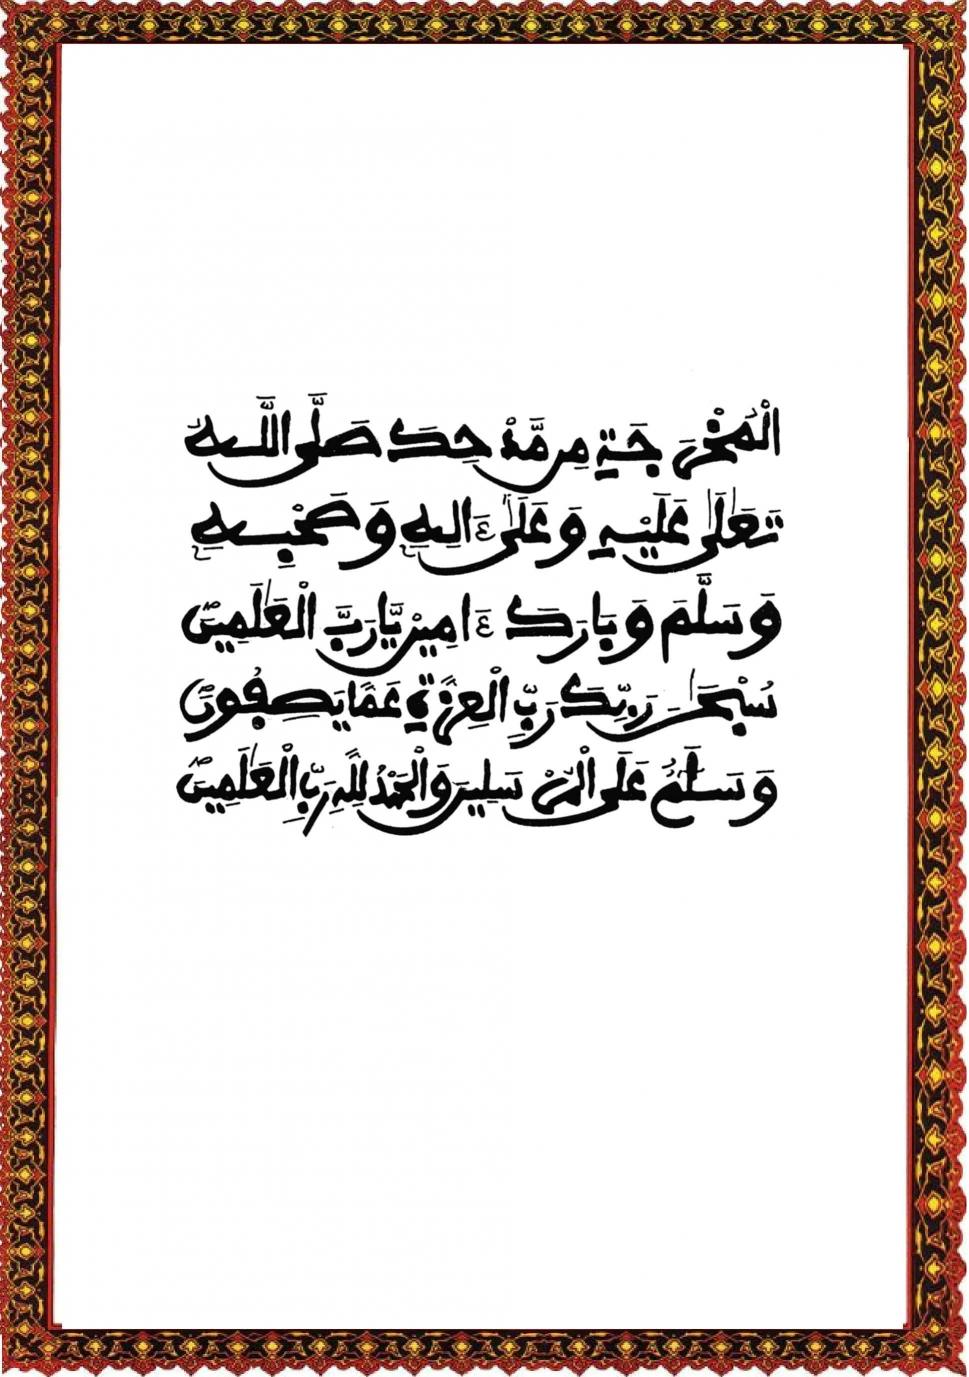 الْمُخْرَجَةِ مِن مَّدْحِكَ صَلَّى اللَّهُ
تَعَلَى عَلَيْهِ وَعَلَىٰ ءَالِهِ وَصَحْبِهِ
وَسَلَّمَ وَبَارَكَ ءَامِينْ يَّارَبَّ الْعَٰلَمِينَ
سُبْحَٰنَ رَبِّكَ رَبِّ الْعِزَّةِ عَمَّا يَصِفُونَ
وَسَلَٰمٌ عَلَى الْمُرْسَلِينَ وَالْحَمْدُ لِلَّهِ رَبِّ الْعَٰلَمِينَ